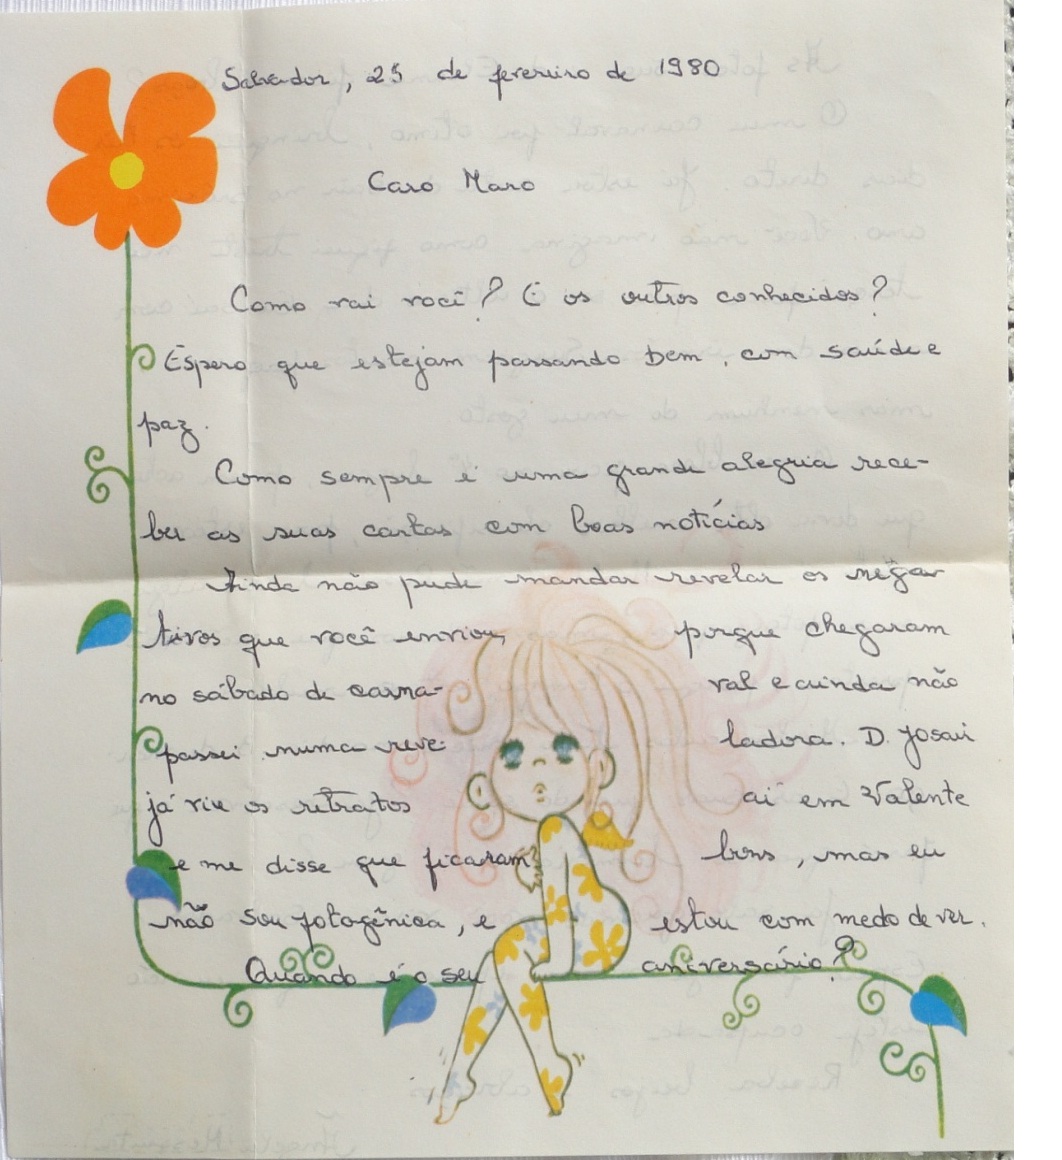 Salvador, 25 de fevereiro de 1980
Caro Maro
Como vai você? E os outros conhecidos?
Espero que estejam passando bem, com saúde e
paz.
Como sempre é uma grande alegria rece-
ber as suas cartas com boas notícias
Ainda não pude mandar revelar os nega
tivos que você enviou, porque chegaram
no sábado de carna- val e ainda não
passei numa reve- ladora. D. Josavi
já viu os retratos aí em Valente
e me disse que ficaram bons, mas eu
não sou fotogênica, e estou com medo de ver.
Quando é o seu aniversário?